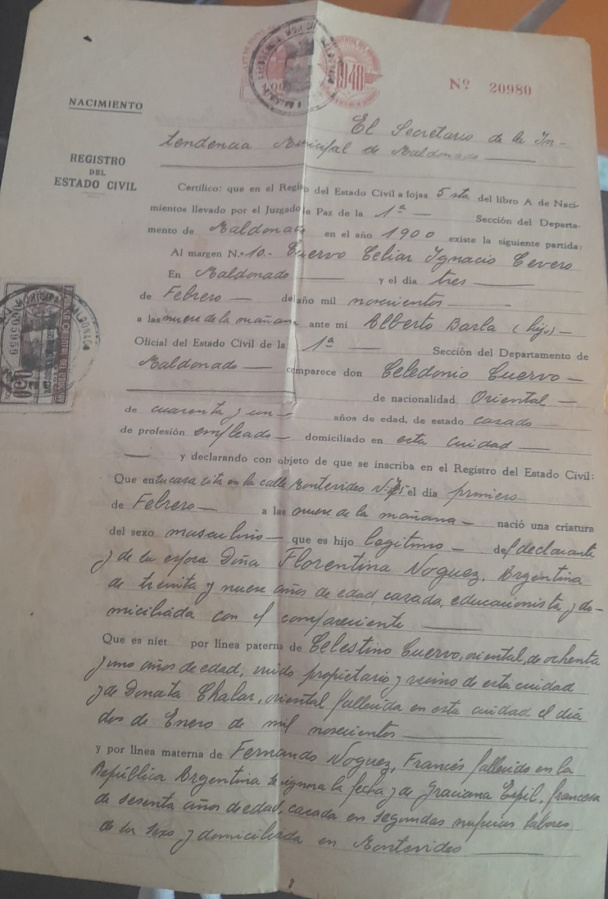 1948
Nº 20980
NACIMIENTO
El Secretario de la In-
tendencia Municipal de Maldonado
REGISTRO
DEL
ESTADO CIVIL
Certifico: que en el Registro del Estado Civil a fojas 5 vta del libro A de Naci-
mientos llevado por el Juzgado de Paz de la 1ª Sección del Departa-
mento de Maldonado en el año 1900 existe la siguiente partida:
Al margen N.º 10. Cuervo Celiar Ignacio Cevero
En Maldonado y el día tres
de Febrero del año mil novcientos
a las nueve de la mañana ante mí Alberto Barla (hijo)
Oficial del Estado Civil de la 1ª Sección del Departamento de
Maldonado comparece don Celedonio Cuervo
de nacionalidad Oriental
de cuarenta y un años de edad, de estado casado
de profesión empleado domiciliado en esta ciudad
y declarando con objeto de que se inscriba en el Registro del Estado Civil:
Que en su casa sita en la calle Montevideo el día primero
de Febrero a las nueve de la mañana nació una criatura
del sexo masculino que es hijo legítimo del declarante
y de su esposa Doña Florentina Noguez, Argentina
de treinta y nueve años de edad, casada, educacionista y do-
miciliada con el compareciente
Que es niet por línea paterna de Celestino Cuervo, oriental, de ochenta
y uno años de edad, viudo propietario y vecino de esta ciudad
y de Donata Chalar, oriental fallecida en esta ciudad el día
dos de Enero de mil novcientos
y por línea materna de Fernando Noguez, Francés fallecido en la
República Argentina se ignora la fecha y de Graciana Espil, francesa
de sesenta años de edad, casada en segundas nupcias labores
de su sexo y domiciliada en Montevideo